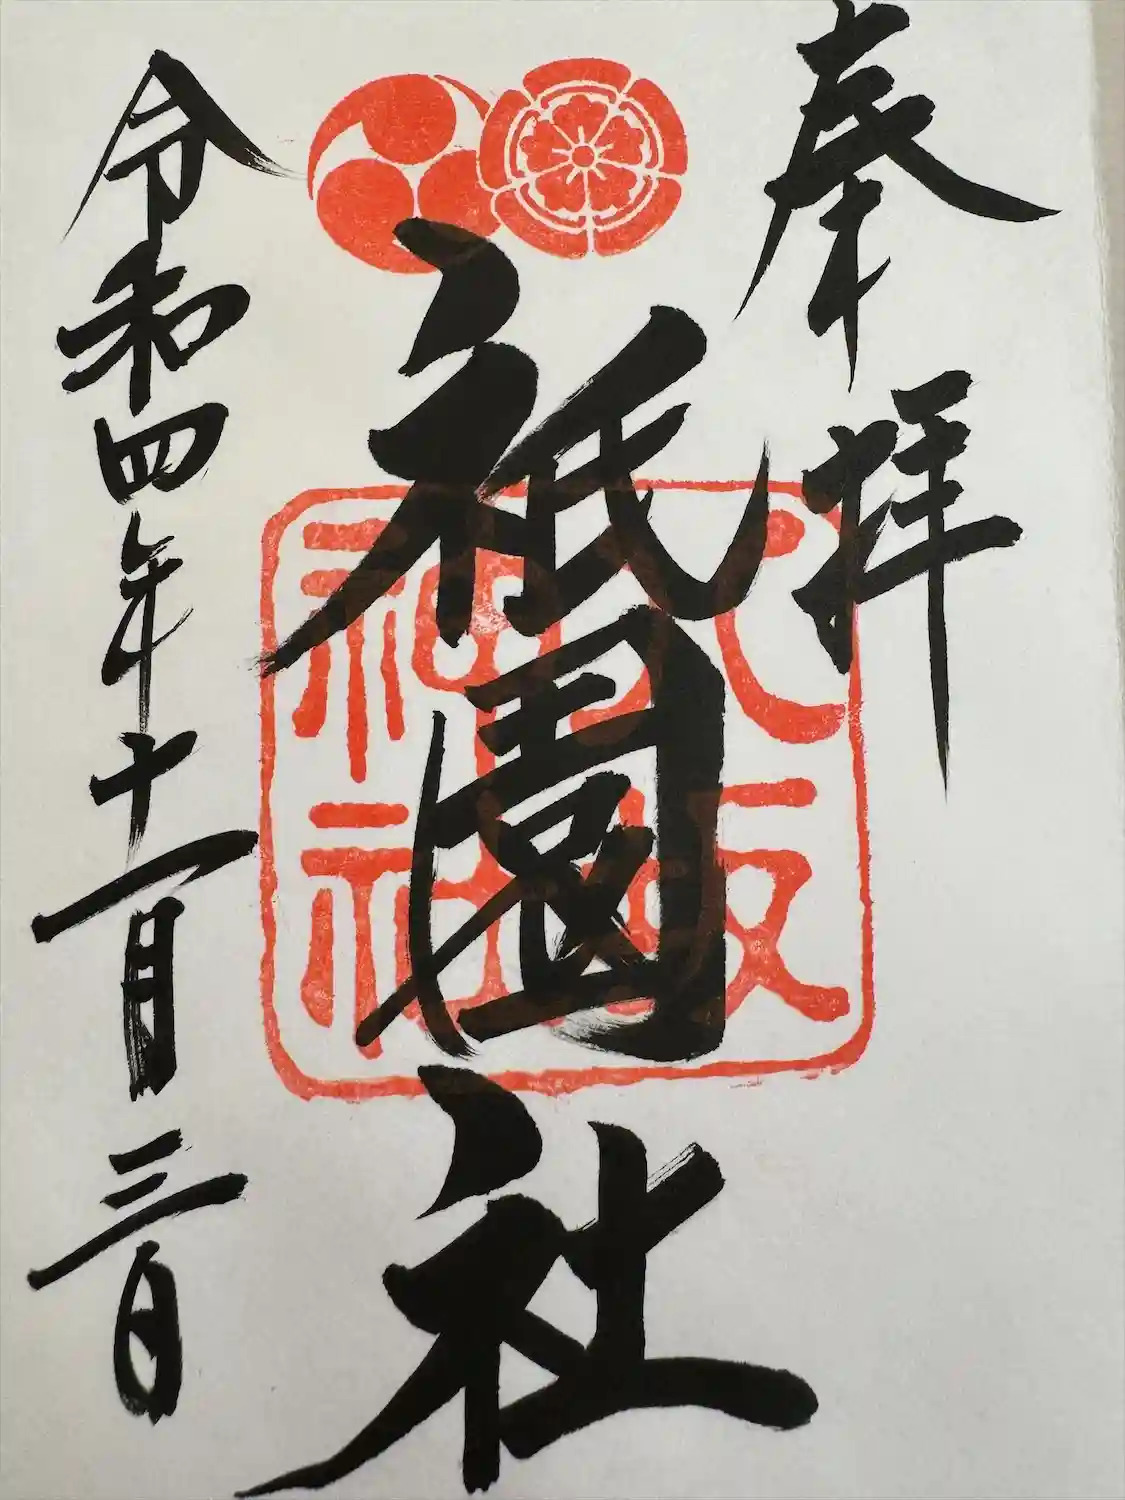 奉拝
祇園社
八坂
神社
令和四年十一月三日